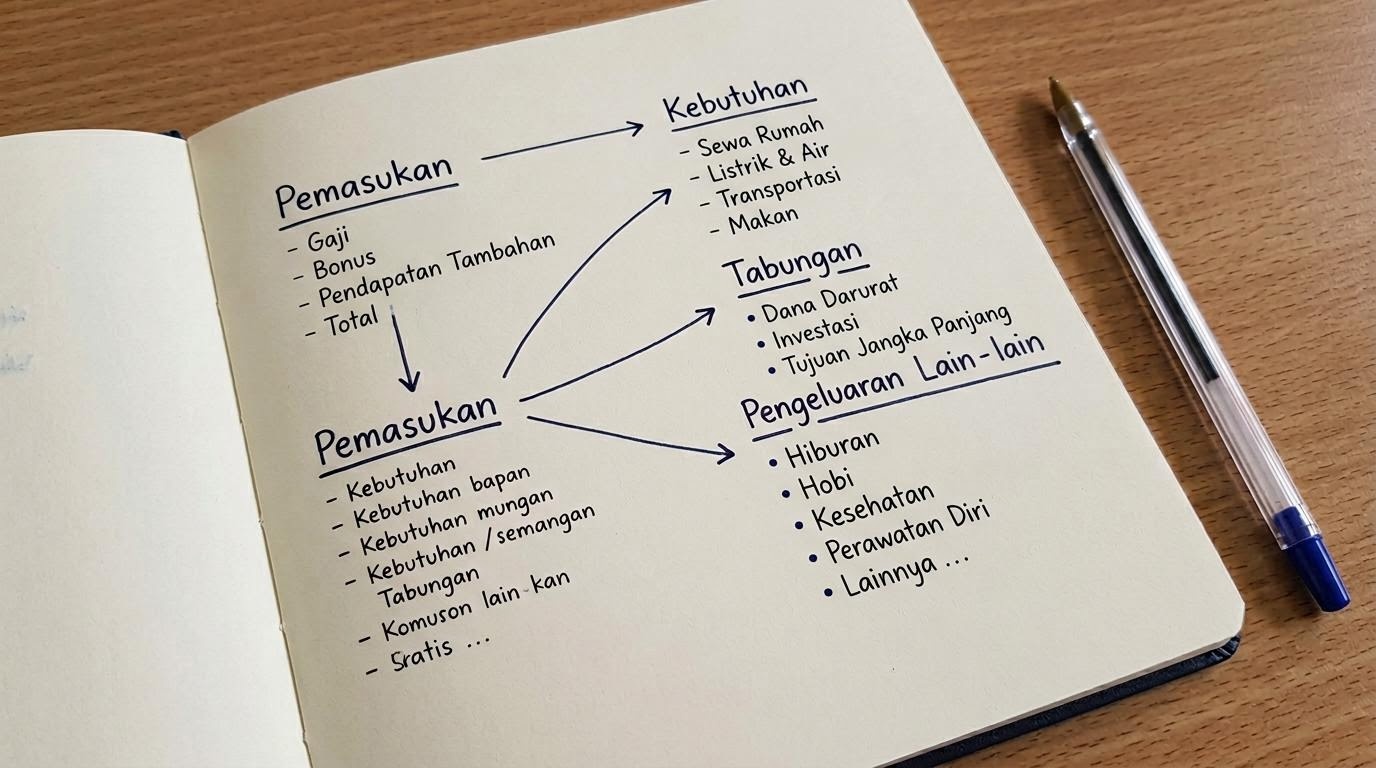 Pemasukan
- Gaji
- Bonus
- Pendapatan Tambahan
- Total
Pemasukan
- Kebutuhan
- Kebutuhan bapan
- Kebutuhan mungan
- Kebutuhan /semangan
Tabungan
- Komuson lain-kan
- Sratis ...
Kebutuhan
- Sewa Rumah
- Listrik & Air
- Transportasi
- Makan
Tabungan
• Dana Darurat
• Investasi
• Tujuan Jangka Panjang
Pengeluaran Lain-lain
• Hiburan
• Hobi
• Kesehatan
• Perawatan Diri
• Lainnya ...